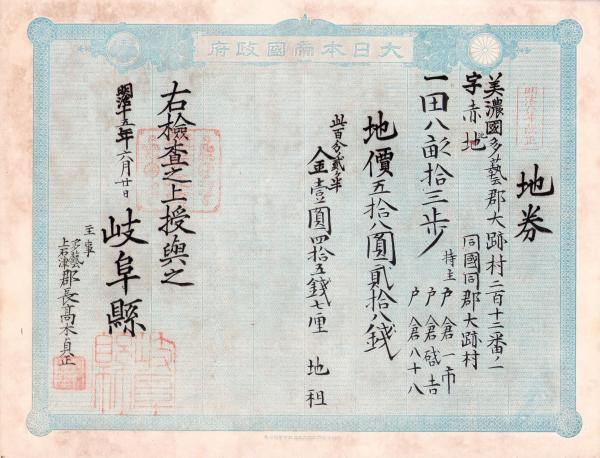 大日本帝國政府
地券
美濃國多藝郡大跡村二百十二番ノ一
字赤地
同國同郡大跡村
一田八畝拾三歩
持主 戸倉一市
戸倉啓吉
戸倉八十八
地價五拾八圓貳拾八錢
此百分ノ貳ケ半
入金壹圓四拾五錢七厘 地租
右檢査之上授與之
明治十五年六月廿日
岐阜縣
多藝
上石津
郡長髙木貞正